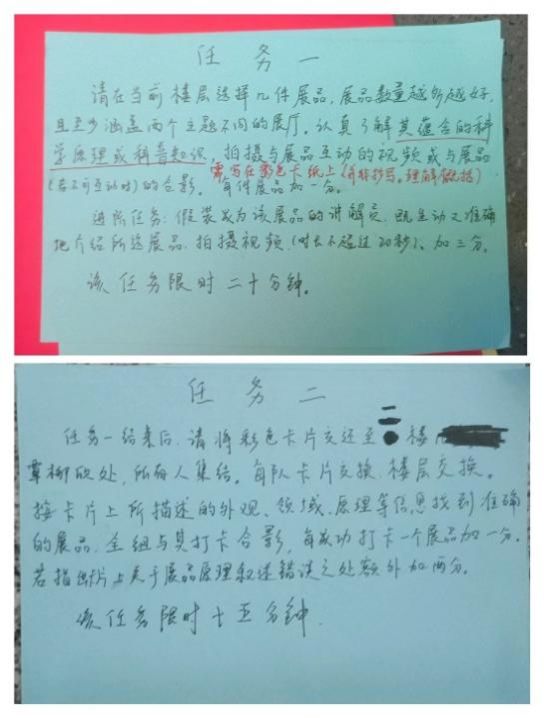 任务一
请在当前楼层选择几件展品，展品数量越多越好，
且至少涵盖两个主题不同的展厅。认真了解其蕴含的科
学原理或科普知识，拍摄与展品互动的视频或与展品
需写在彩色卡纸上（并非抄写，理解概括）
（若不可互动时）的合影。每件展品加一分。
进阶任务：假装成为该展品的讲解员，既生动又准确
地介绍所选展品，拍摄视频（时长不超过30秒），加三分。
该任务限时二十分钟。
任务二
任务一结束后，请将彩色卡片交还至二楼
覃柳欣处，所有人集结。每队卡片交换，楼层交换。
按卡片上所描述的外观、领域、原理等信息找到准确
的展品，全组与其打卡合影，每成功打卡一个展品加一分。
若指出卡片上关于展品原理叙述错误之处额外加两分。
该任务限时十五分钟。